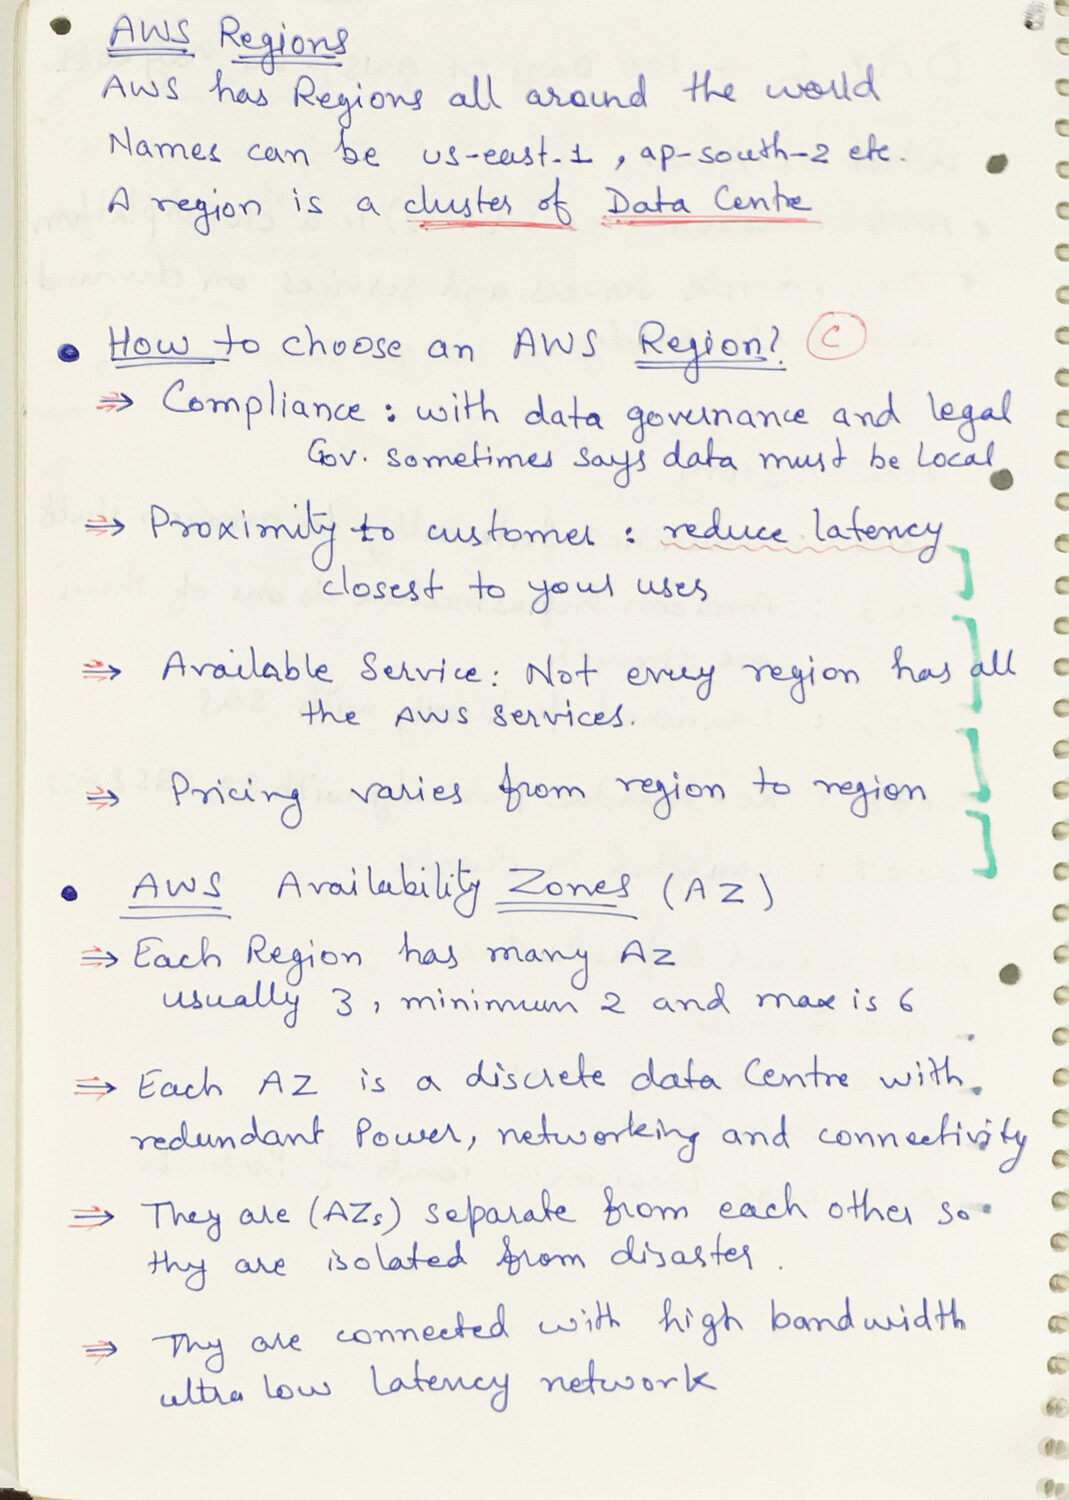 AWS Regions
AWS has Regions all around the world
Names can be us-east-1, ap-south-2 etc.
A region is a cluster of Data Centre
How to choose an AWS Region? C
⇒ Compliance: with data governance and legal
Gov. sometimes says data must be local
⇒ Proximity to customer: reduce latency
closest to your uses
⇒ Available Service: Not every region has all
the AWS services.
⇒ Pricing varies from region to region
AWS Availability Zones (AZ)
⇒ Each Region has many AZ
usually 3, minimum 2 and max is 6
⇒ Each AZ is a discrete data Centre with
redundant Power, networking and connectivity
⇒ They are (AZs) separate from each other so
thy are isolated from disaster.
⇒ Thy are connected with high bandwidth
ultra low latency network